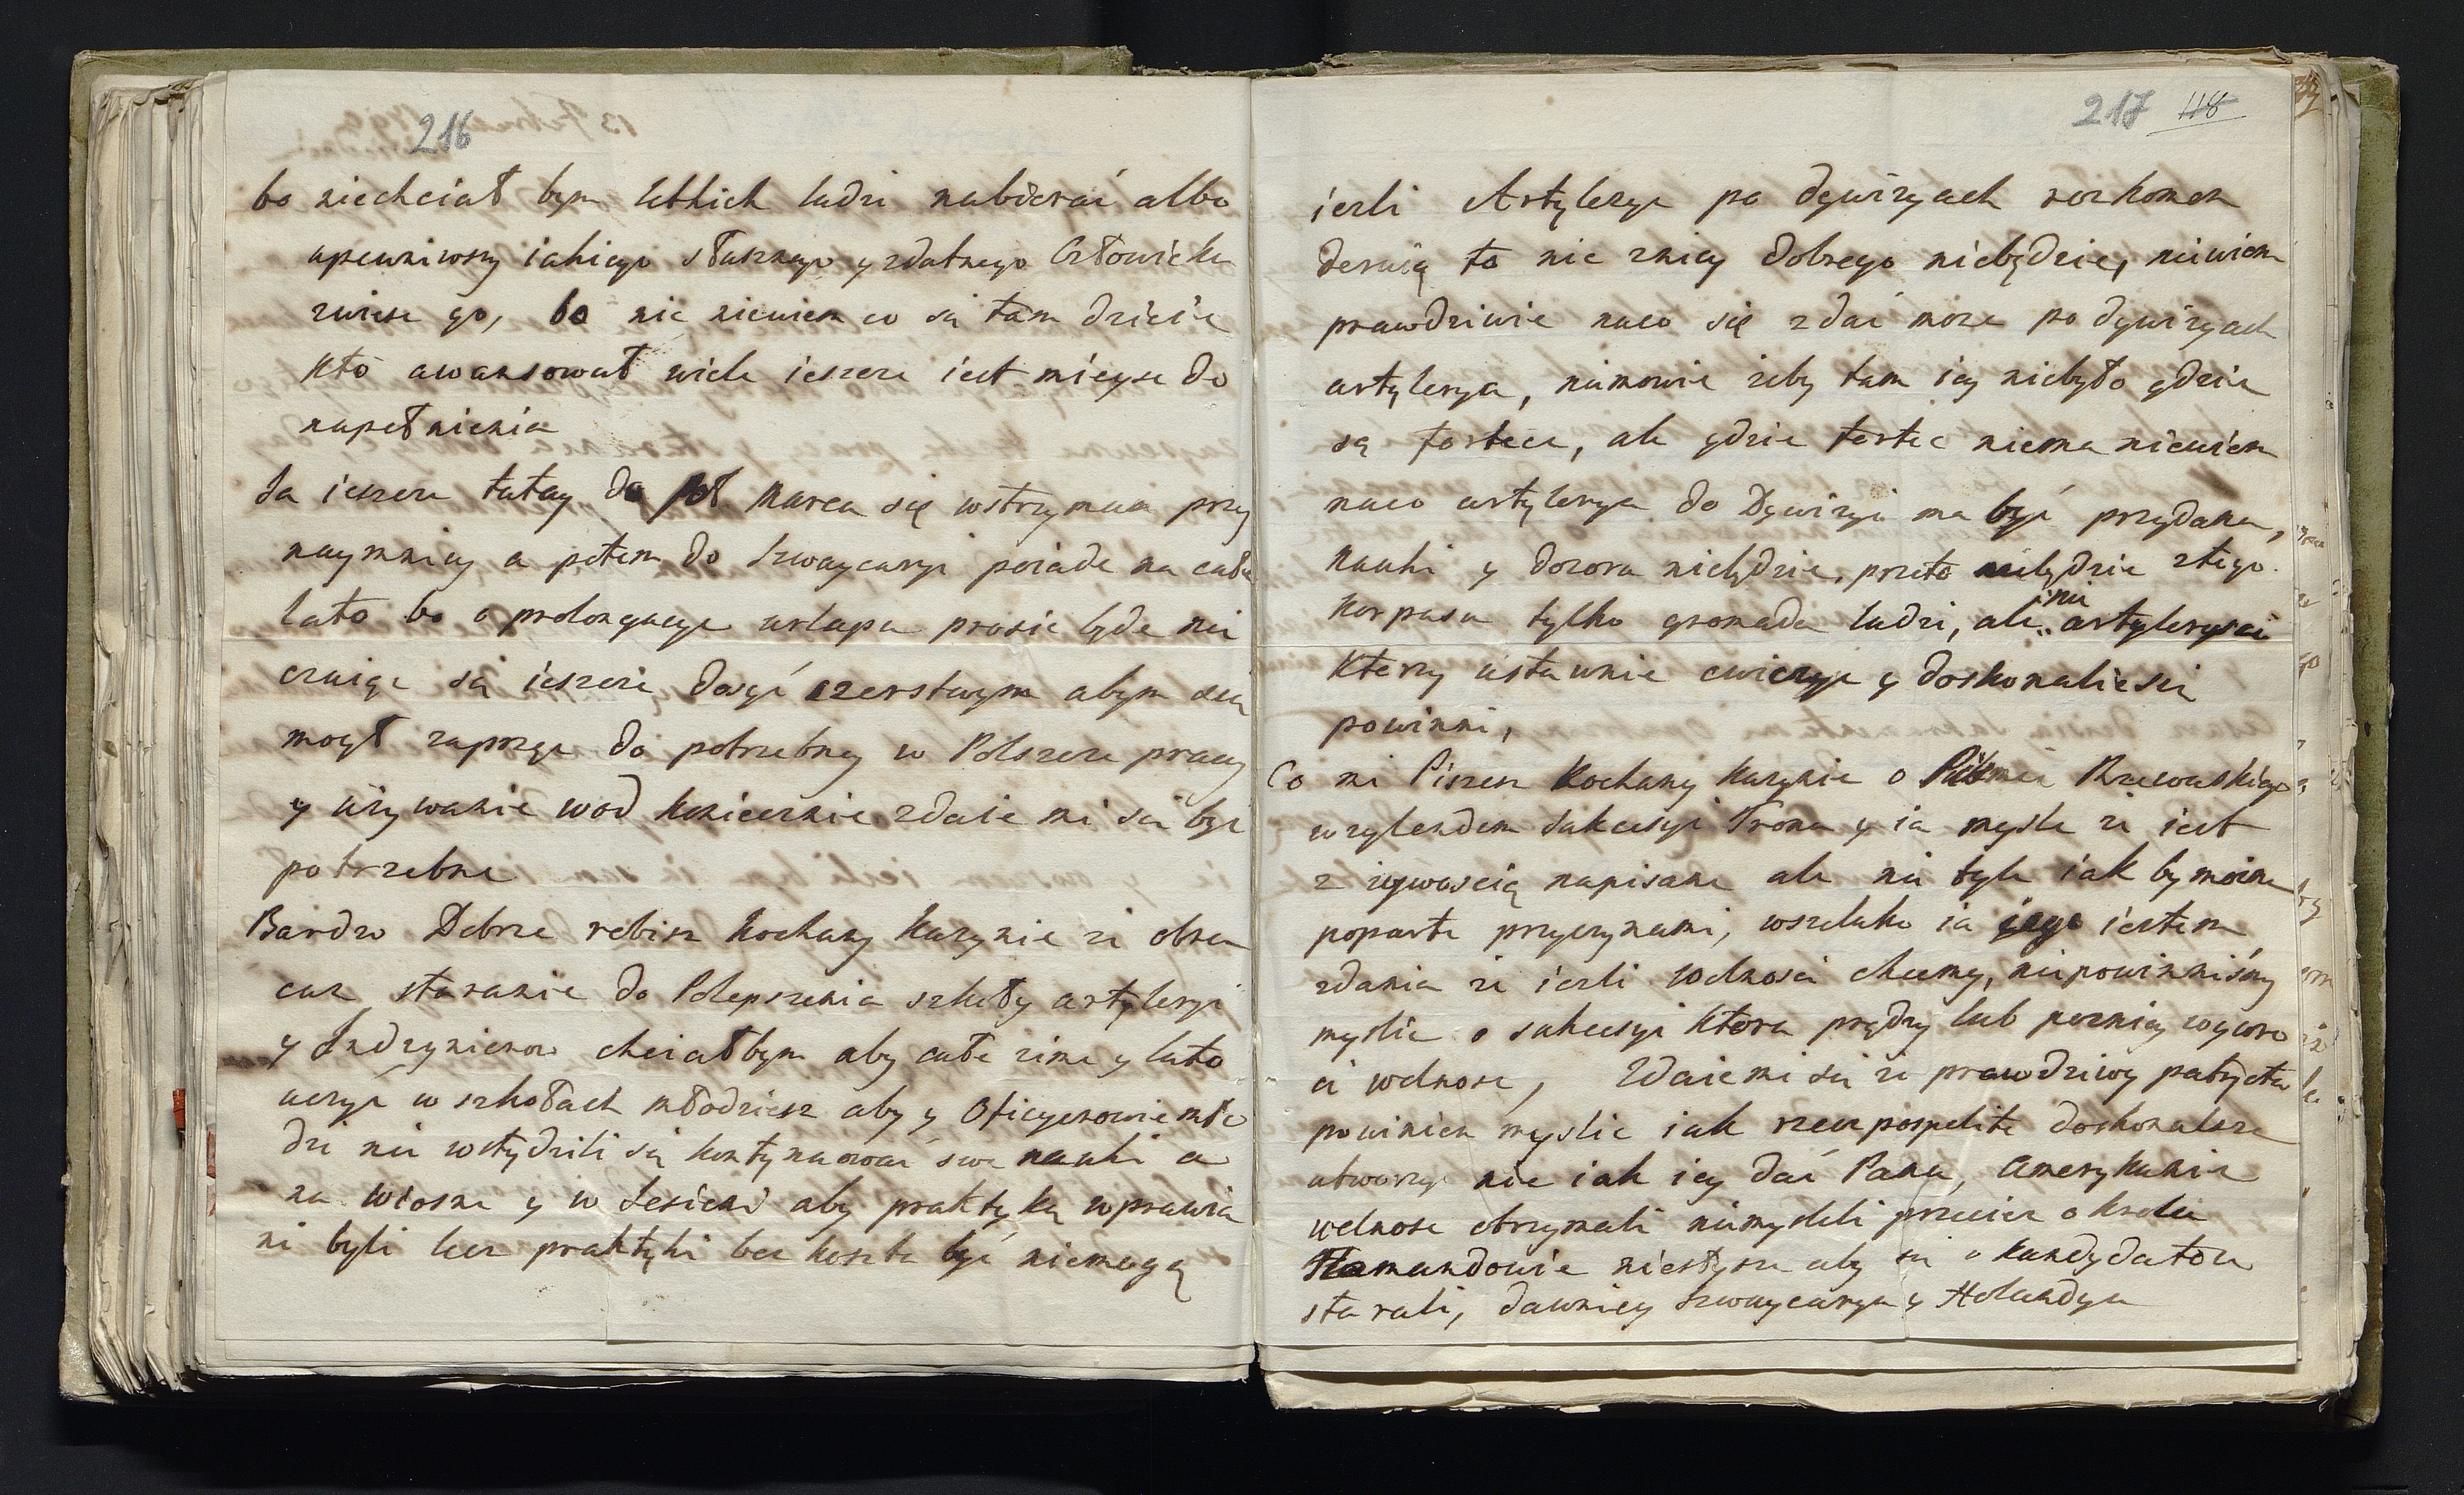 216
bo niechciał bym letkich ludzi nabierać albo
upewniwszy iakiego słusznego y zdatnego Człowieka
zwieść go, bo nic niewiem co się tam dzieie
kto awansował wiele ieszcze iest mieysc do
napełnienia
Ja ieszcze tutay do poł Marca się wstrzymam przy
naymniey a potem do Szwaycaryi poiade na całe
lato bo o prolongacye urlopu prosic będe nie
czuiąc się ieszcze dosyć czerstwym abym się
mogł zaprząc do potrzebney w Polszcze pracy
y używanie wod koniecznie zdaie mi się być
potrzebne
Bardzo Dobrze robisz kochany kuzynie że obra
casz staranie do Polepszenia szkoły artyleryi
y Indzynierow chciałbym aby całe zime y lato
uczyć w szkołach młodziesz aby y Oficyerowie mło
dzi nie wstydzili się kontynuować swe nauki a
na wiosne y w Jesieni aby praktyką wprawia
ni byli lecz praktyki bez koszta być niemogą
217 118
ieżli Artylerye po dywizyach rozkomen
deruią to nic zniey dobrego niebędzie, niewiem
prawdziwie naco się zdać może po dywizyach
artylerya, niemowie żeby tam iey niebyło gdzie
są fortece, ale gdzie fortec niema niewiem
naco artylerya do Dywizyi ma być przydana,
Nauki y dozoru niebędzie, przeto niebędzie ztego
korpusu tylko gromada ludzi, ale nie artyleryści
ktorzy ustawnie cwiczyc y doskonalic się
powinni,
Co mi Piszesz Kochany kuzynie o Piśmie Rzewuskiego
względem sukcesyi Tronu y ia mysle że iest
z żywością napisane ale nie tyle iak by można
poparte przyczynami, wszelako ia iego iestem
zdania że ieżli wolności chcemy, niepowinniśmy
myslic o sukcesyi ktora prędzy lub pozniey wywro
ci wolnosc, Zdaie mi się że prawdziwy patryota
powinien myslic iak rzeczpospolite doskonalsze
utworzyc nie iak iey dać Pana, Amerykanie
wolnosc otrzymali niemysleli przecież o krolu
Flamandowie niesłysze aby się o kandydatow
starali, dawniey Szwaycarya y Holandya